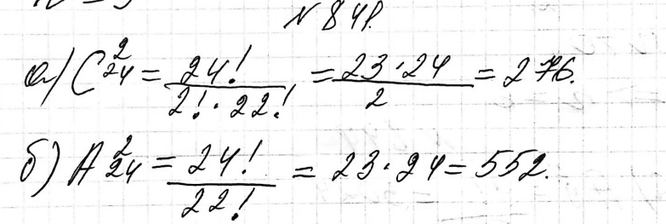 № 841.
а) C²₂₄ = 24! / 2! · 22! = 23 · 24 / 2 = 276.
б) A²₂₄ = 24! / 22! = 23 · 24 = 552.